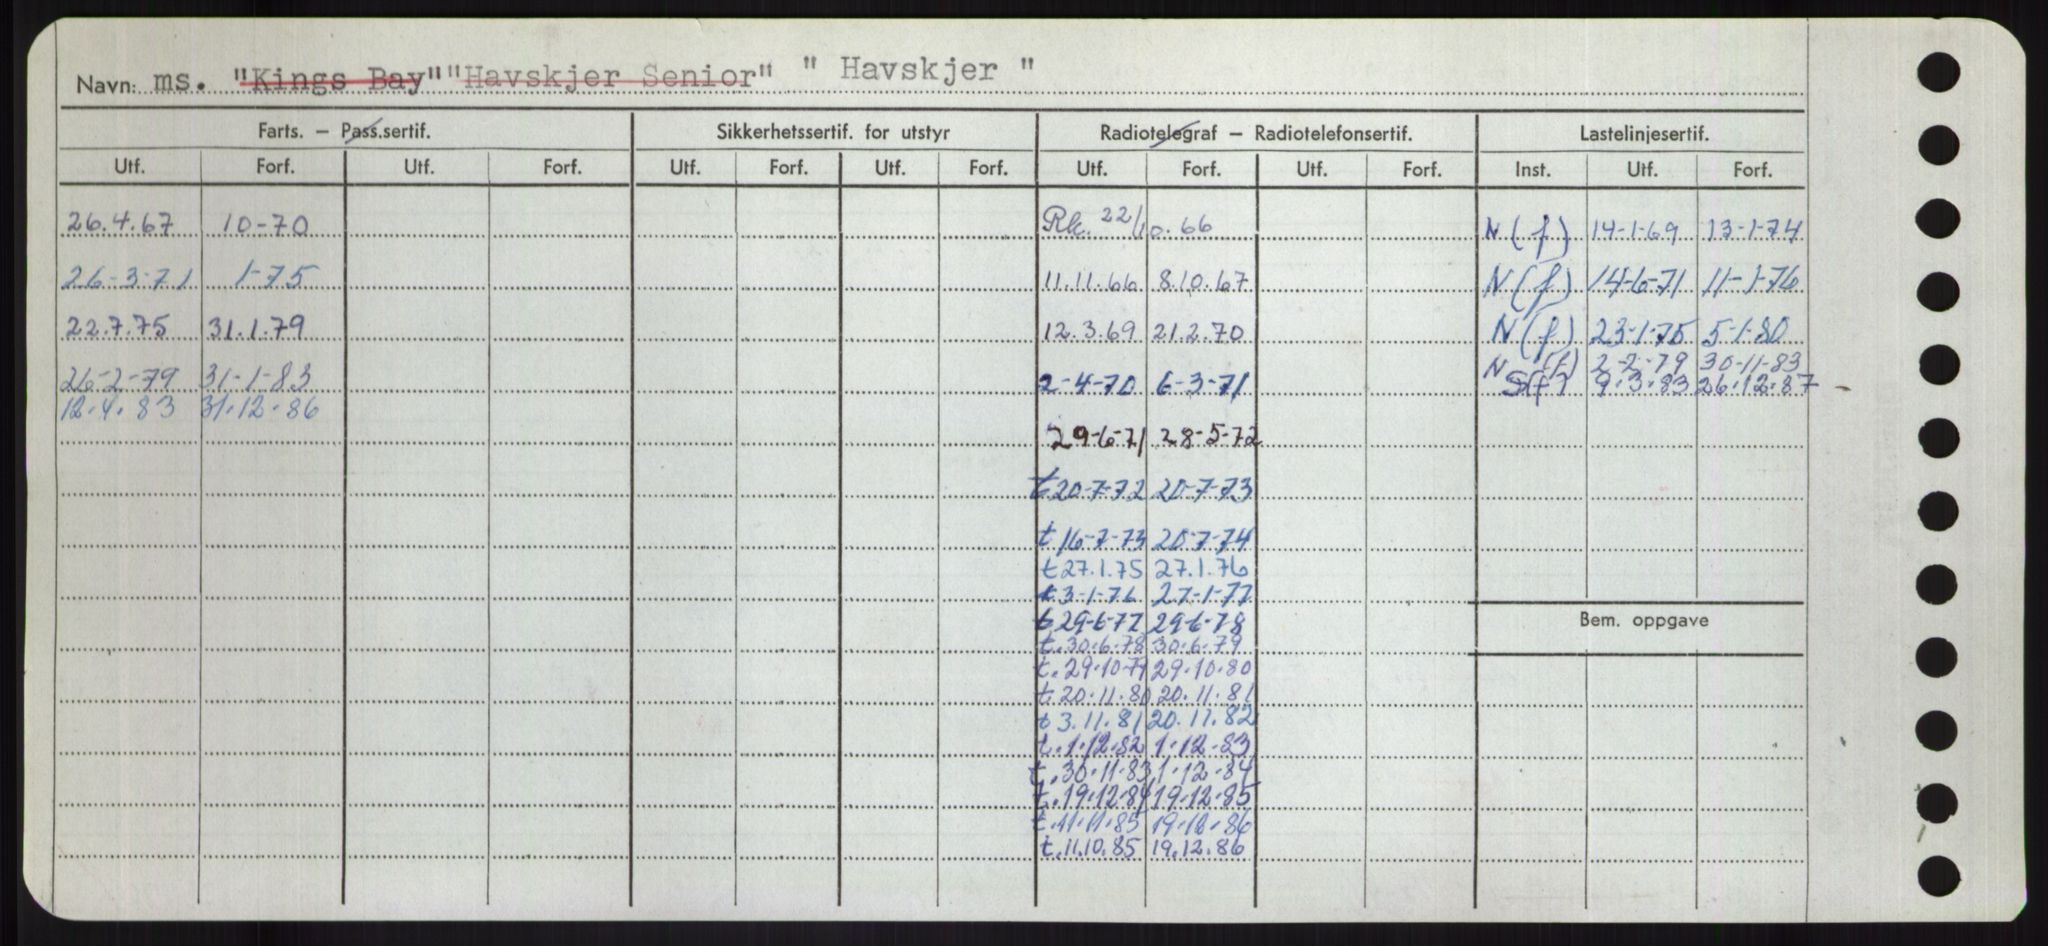 Navn: ms. "Kings Bay" "Havskjer Senior" " Havskjer "
Farts. — Pass.sertif. Sikkerhetssertif. for utstyr Radiotelegraf — Radiotelefonsertif. Lastelinjesertif.
Utf. Forf. Utf. Forf. Utf. Forf. Utf. Forf. Utf. Forf. Utf. Forf. Inst. Utf. Forf.
26.4.67 10-70 Rk. 22/10.66 N(f) 14-1-69 13-1-74
26-3-71 1-75 11.11.66 8.10.67 N(f) 14-6-71 11-1-76
22.7.75 31.1.79 12.3.69 21.2.70 N(f) 23-1-75 5-1-80
N (f) 2-2-79 30-11-83
26-2-79 31-1-83 2-4-70 6-3-71 S(f) 9.3.83 26.12.87
12.4.83 31.12.86
29-6-71 28-5-72
t 20-7-72 20-7-73
t 16-7-73 20-7-74
t 27.1.75 27.1.76
t 3-1-76 27-1-77
t 29-6-77 29-6-78
Bem. oppgave
t. 30.6.78 30.6.79
t. 29.10-79 29.10.80
t. 20.11.80 20.11.81
t 3.11.81 20.11.82
t. 1.12.82 1.12.83
t. 30.11.83 1.12.84
t. 19.12.84 19.12.85
t. 11.11.85 19.12.86
t. 11.10.85 19.12.86